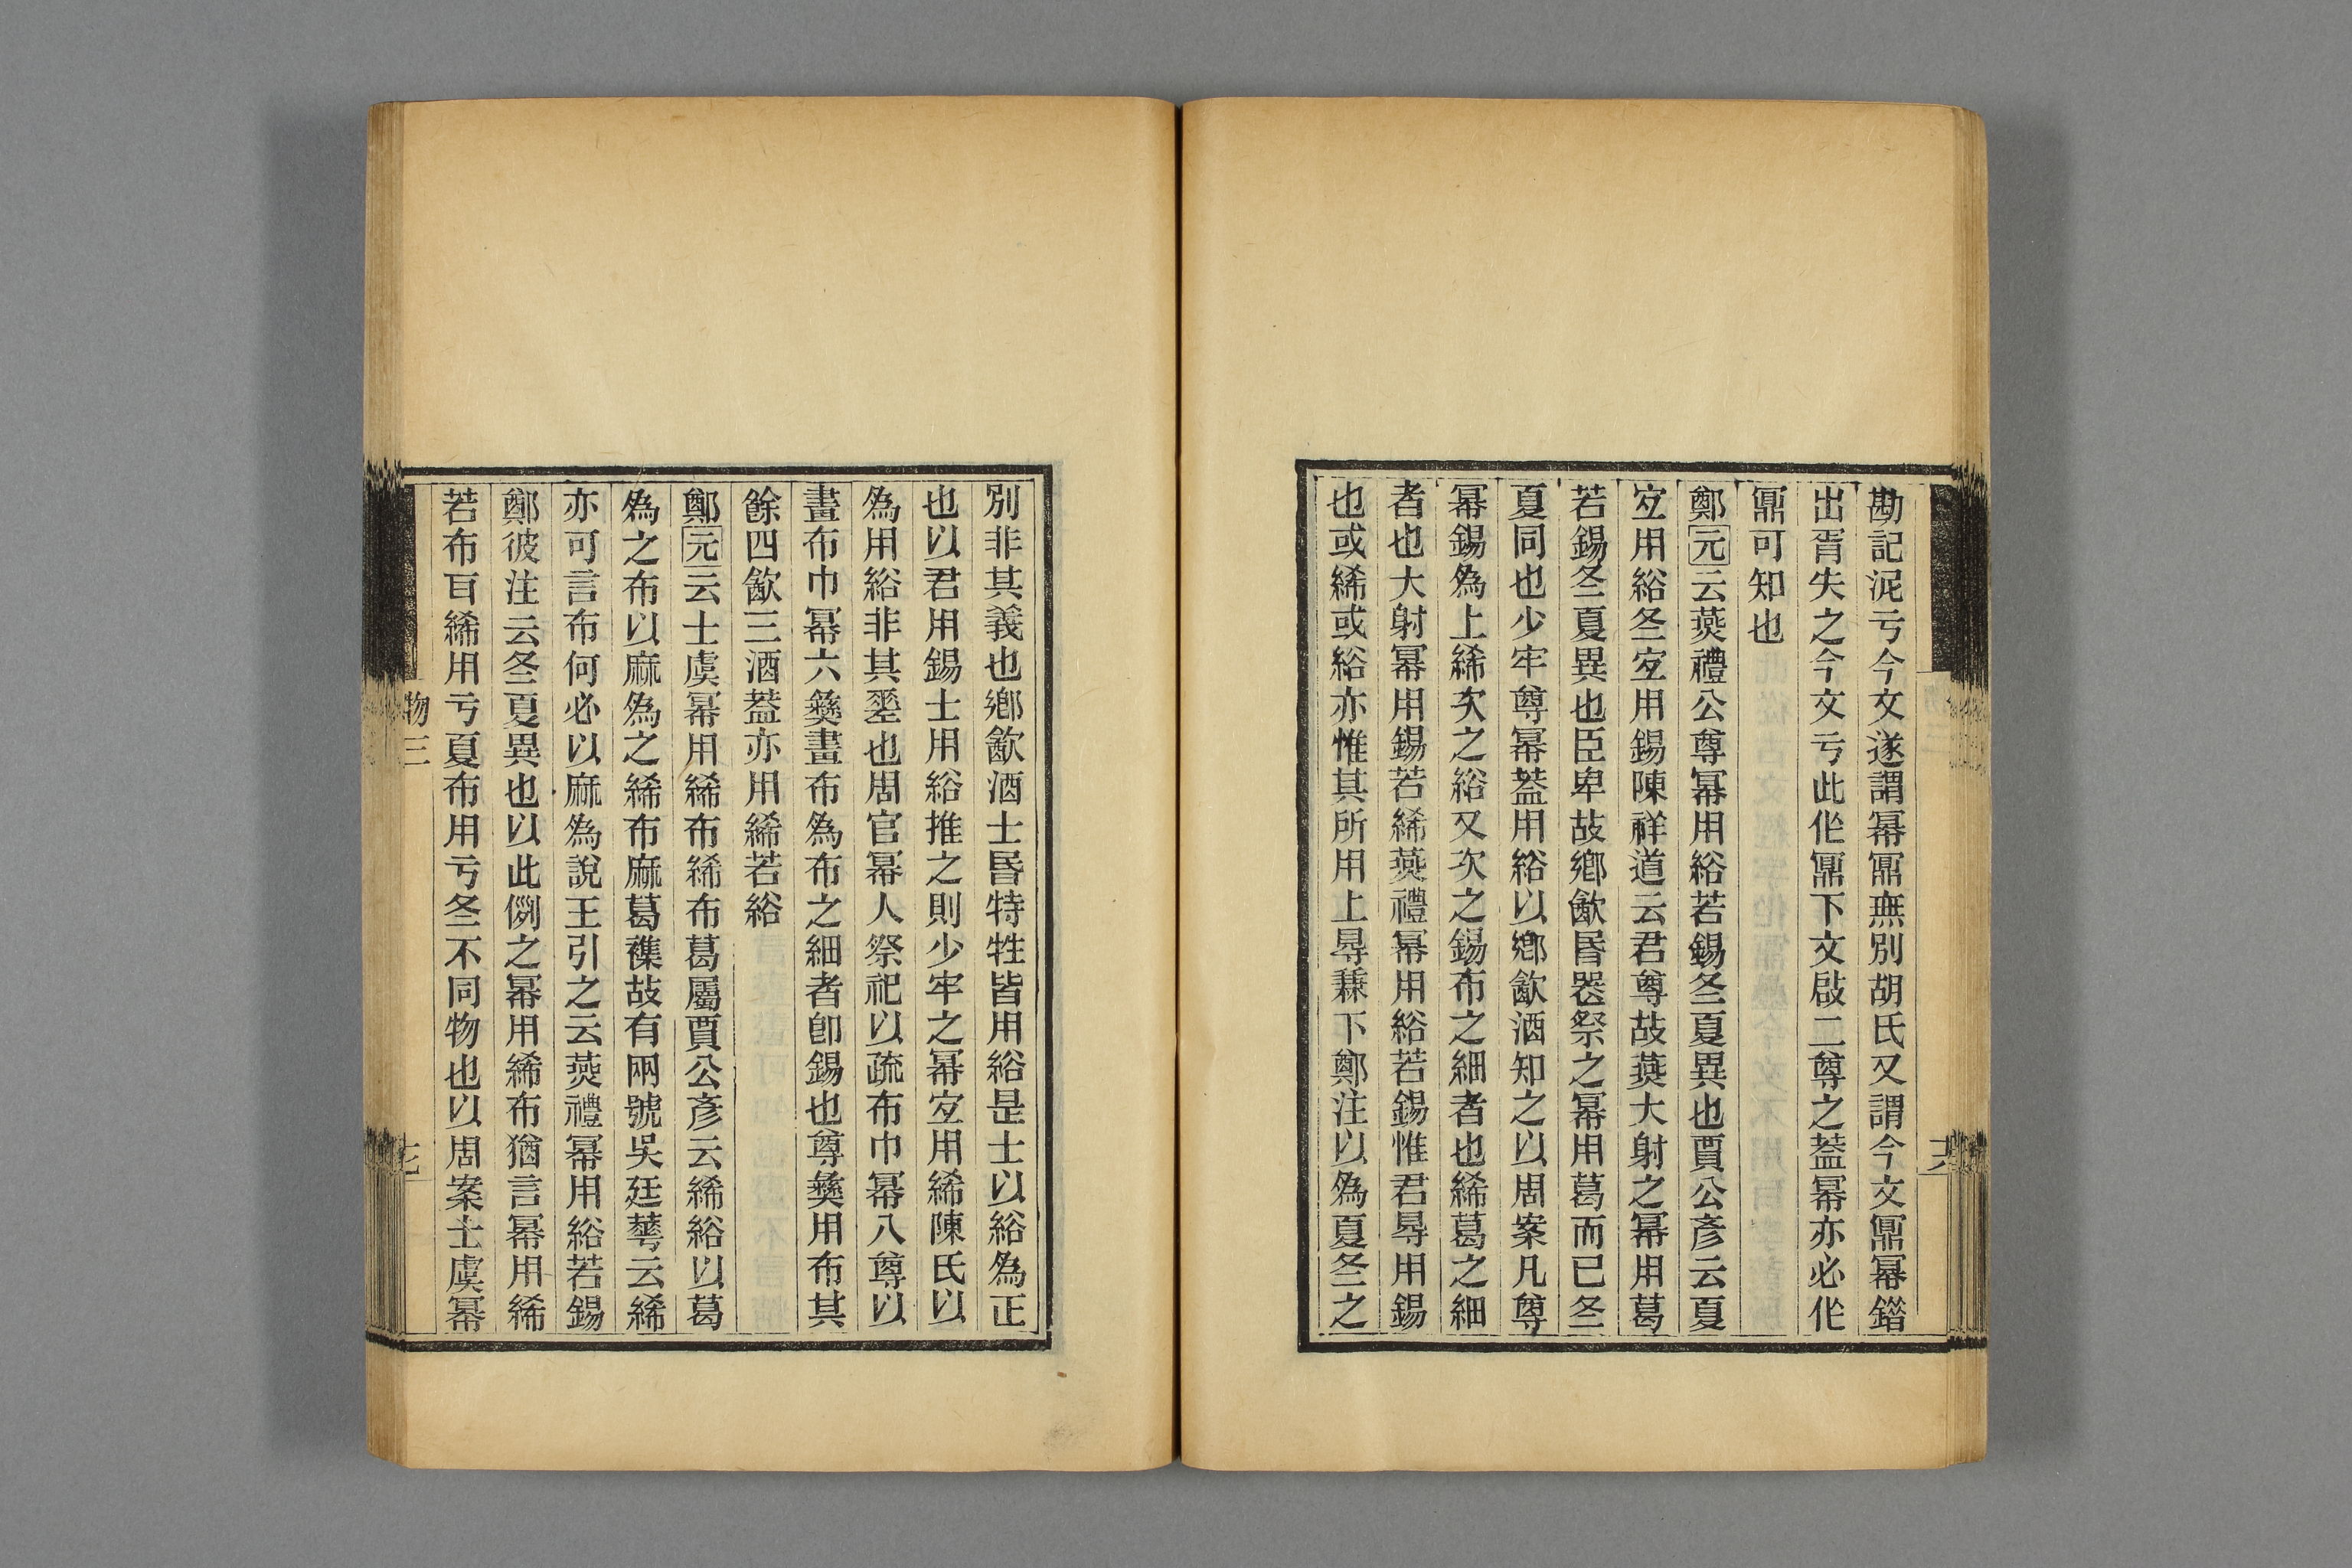 勘記泥亏今文遂謂幂鼏無別胡氏又謂今文鼏幂鐕
出胥失之今文亏此作鼏下文啟二尊之蓋幂亦必作
鼏可知也
鄭元云燕禮公尊幂用綌若錫冬夏異也賈公彥云夏
宐用綌冬宐用錫陳祥道云君尊故燕大射之幂用葛
若錫冬夏異也臣卑故鄉飲昏器祭之幂用葛而已冬
夏同也少牢尊幂蓋用綌以鄉飲酒知之以周案凡尊
幂錫為上絺次之綌又次之錫布之細者也絺葛之細
者也大射幂用錫若絺燕禮幂用綌若錫惟君㝵用錫
也或絺或綌亦惟其所用上㝵兼下鄭注以為夏冬之
別非其義也鄉飲酒士昏特牲皆用綌是士以綌為正
也以君用錫士用綌推之則少牢之幂宐用絺陳氏以
為用綌非其㙂也周官幂人祭祀以疏布巾幂八尊以
畫布巾幂六彝畫布為布之細者卽錫也尊彝用布其
餘四飲三酒蓋亦用絺若綌
鄭元云士虞幂用絺布絺布葛屬賈公彥云絺綌以葛
為之布以麻為之絺布麻葛襍故有兩號吳廷華云絺
亦可言布何必以麻為說王引之云燕禮幂用綌若錫
鄭彼注云冬夏異也以此例之幂用絺布猶言幂用絺
若布㠯絺用亏夏布用亏冬不同物也以周案士虞幂
物三
十七
十六